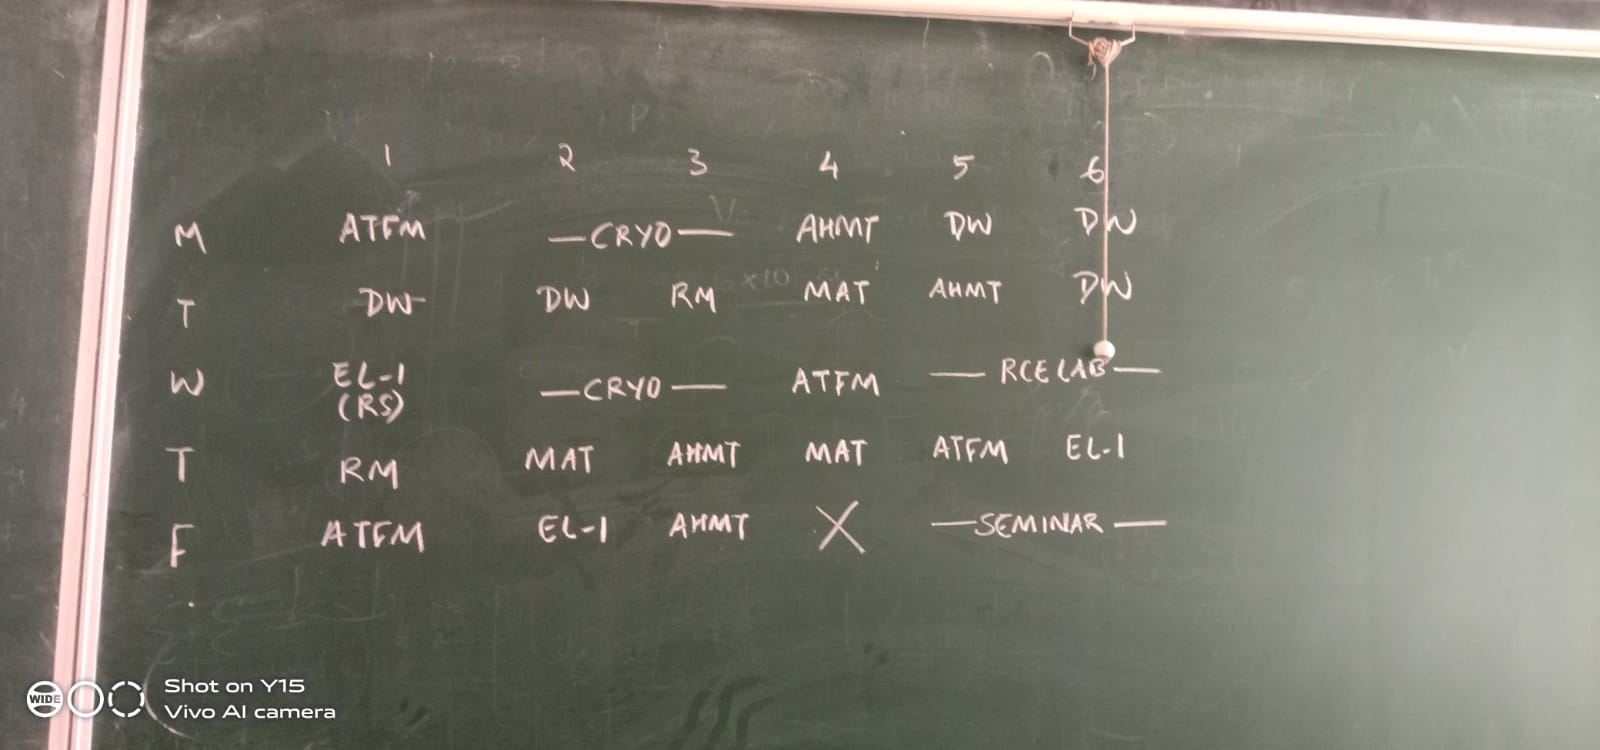 1 2 3 4 5 6
M ATFM —CRYO— AHMT DW DW
T DW DW RM MAT AHMT DW
W EL-1 (RS) —CRYO— ATFM — RCE LAB —
T RM MAT AHMT MAT ATFM EL-1
F ATFM EL-1 AHMT X —SEMINAR—
WIDE
Shot on Y15
Vivo AI camera